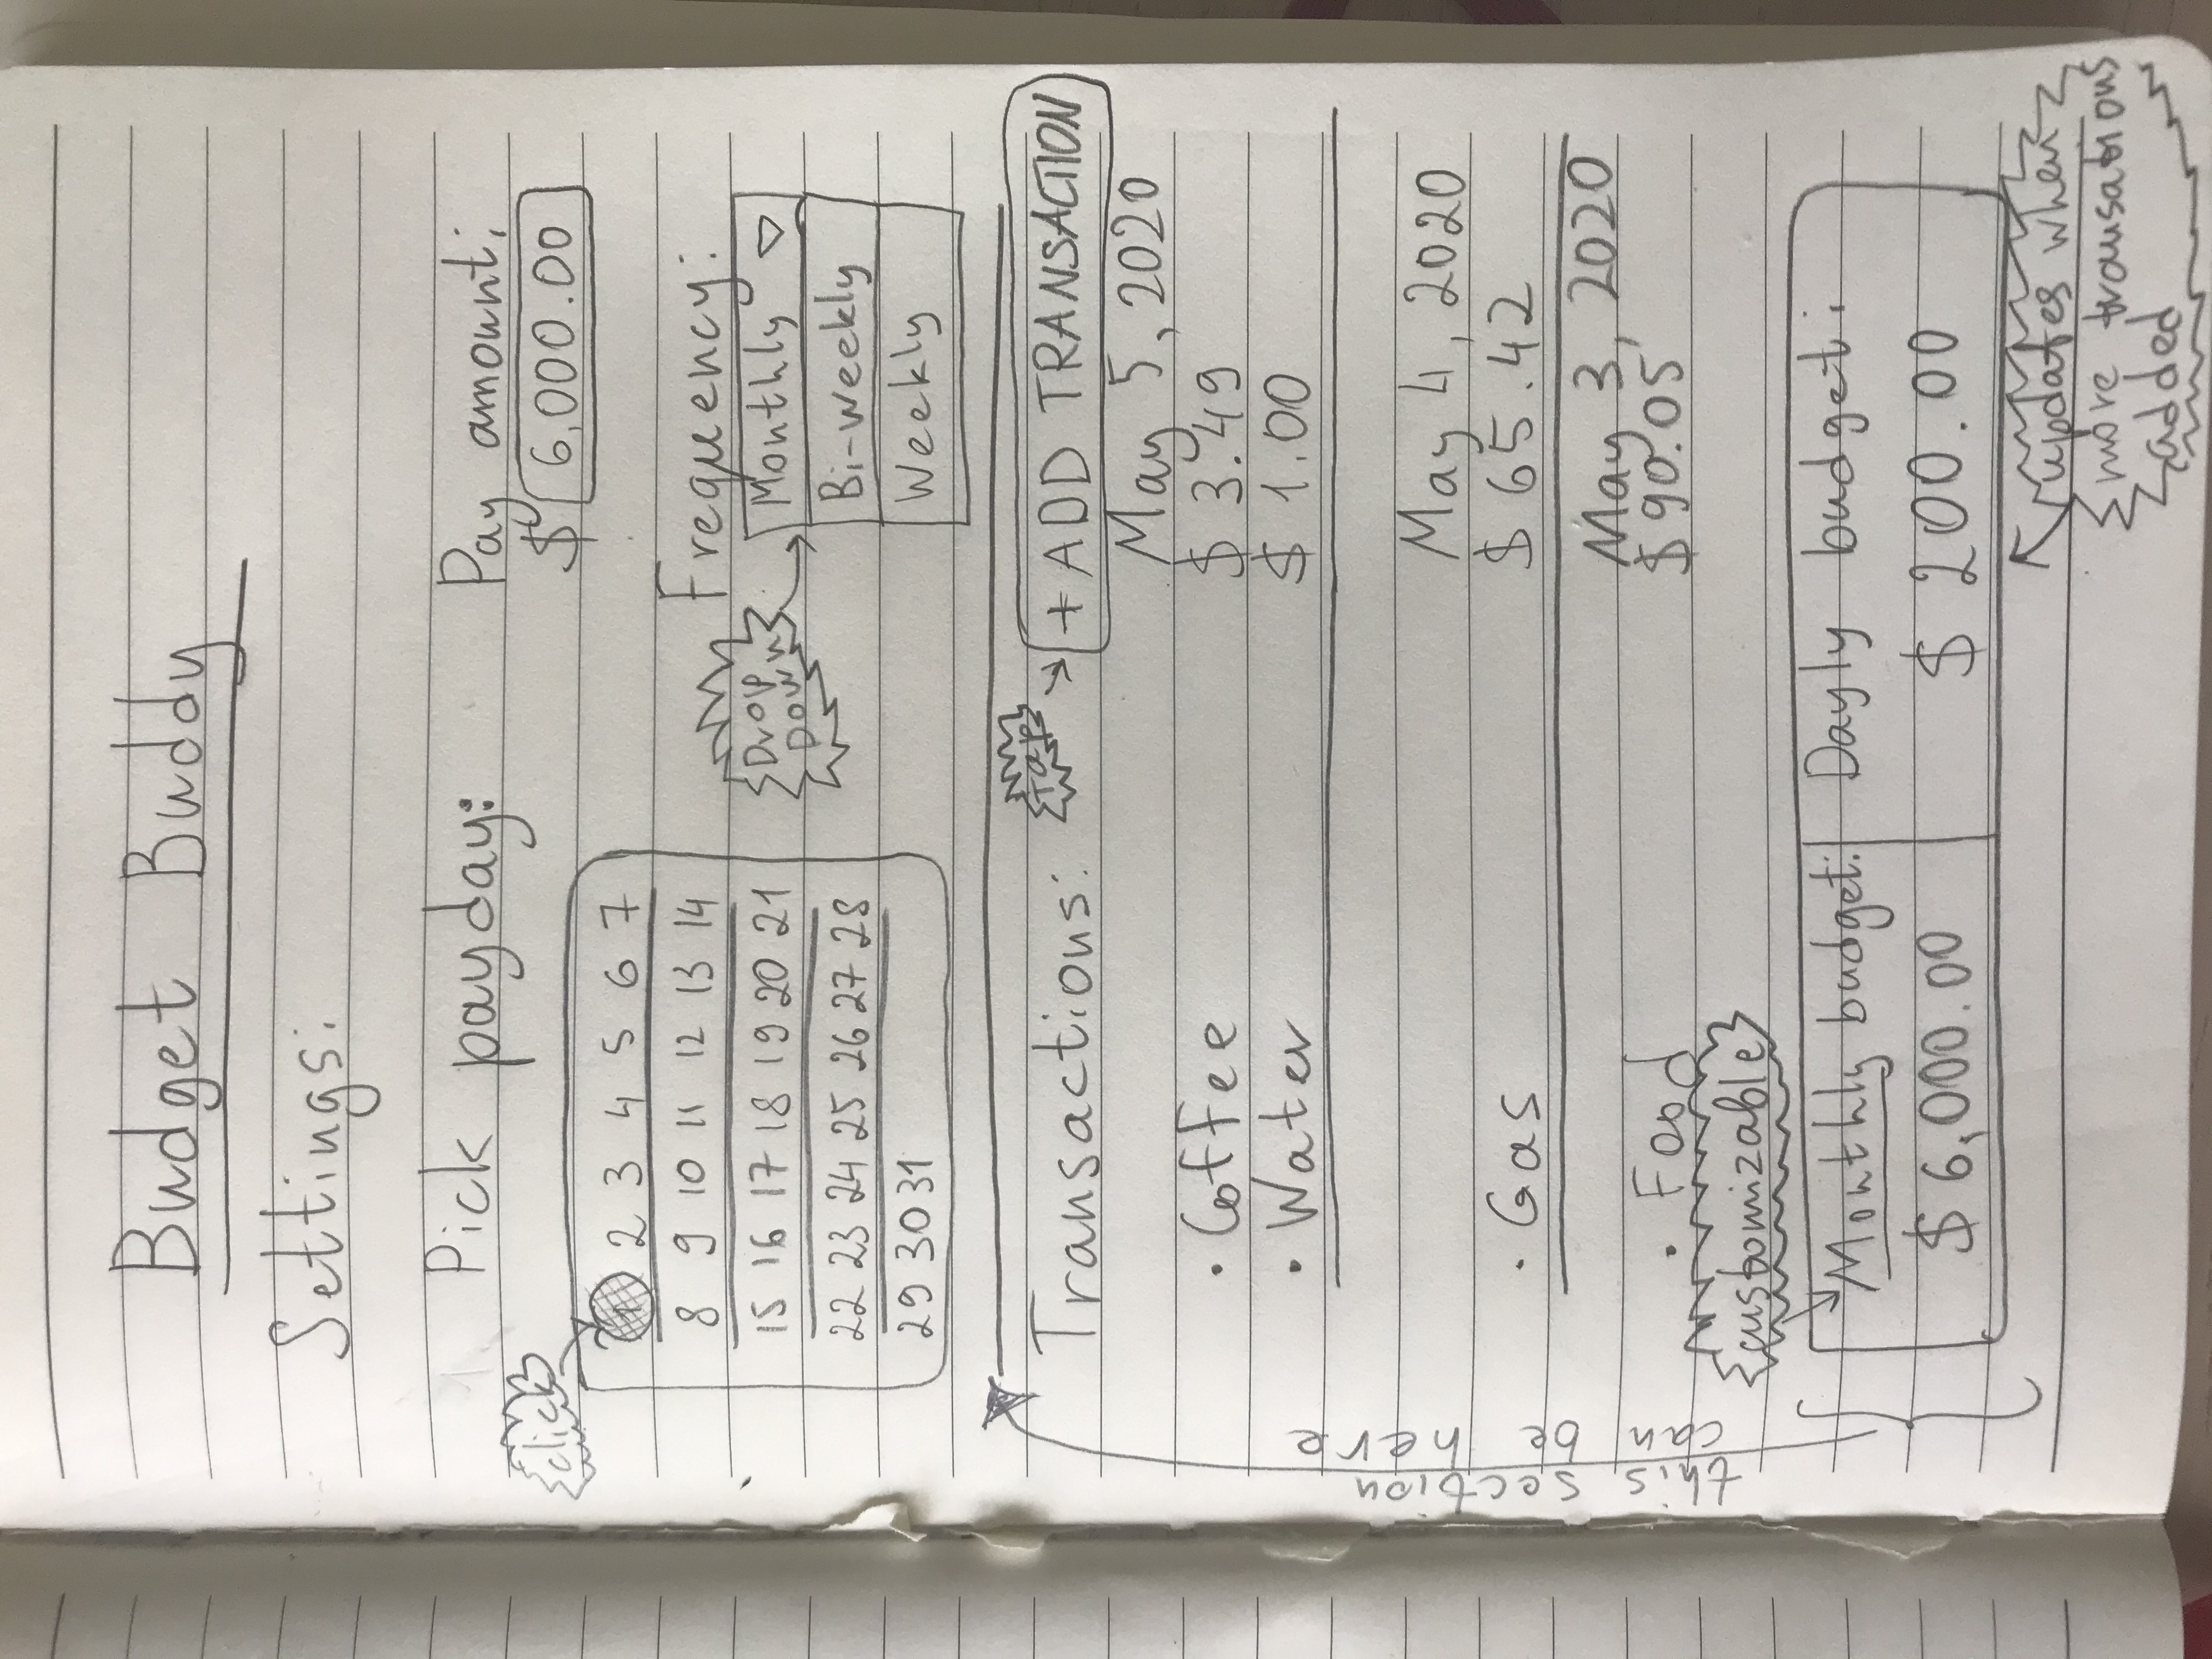 Budget Buddy
Settings:
Pick payday:
Pay amount:
$ 6,000.00
click
1 2 3 4 5 6 7
8 9 10 11 12 13 14
15 16 17 18 19 20 21
22 23 24 25 26 27 28
29 30 31
Frequency:
Drop
Down
Monthly
Bi-weekly
Weekly
Transactions:
tap
+ ADD TRANSACTION
May 5, 2020
• Coffee $ 3.49
• Water $ 1.00
May 4, 2020
• Gas $ 65.42
May 3, 2020
• Food $ 90.05
this section
can be here
customizable
Monthly budget:
$ 6,000.00
Dayly budget:
$ 200.00
updates when
more transations
added